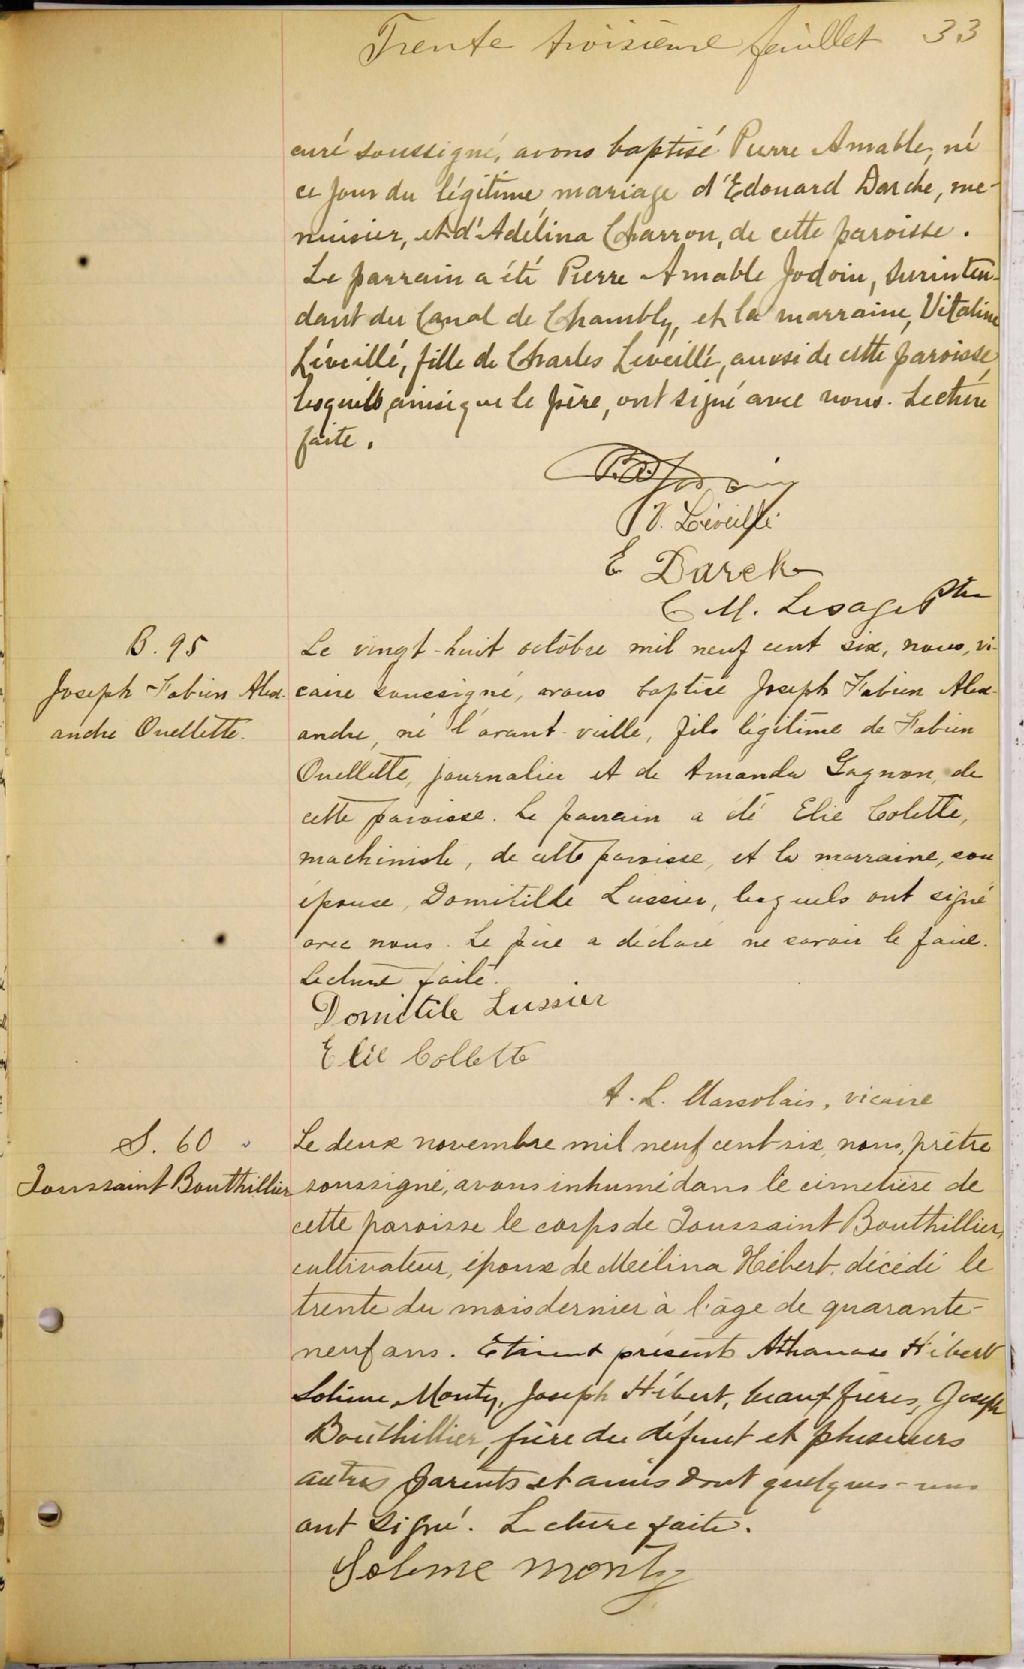 Trente troisième feuillet 33
curé soussigné, avons baptisé Pierre Amable, né
ce jour du légitime mariage d'Edouard Darche, me-
nuisier, et d'Adélina Charron, de cette paroisse.
Le parrain a été Pierre Amable Jodoin, Surinten-
dant du Canal de Chambly, et la marraine, Vitaline
Léveillé, fille de Charles Léveillé, aussi de cette paroisse,
lesquels, ainsi que le père, ont signé avec nous. Lecture
faite.
P.A. Jodoin
V. Léveillé
E Darche
C M. Lesage Ptre
B. 95
Joseph Fabien Alex-
andre Ouellette.
Le vingt-huit octobre mil neuf cent six, nous, vi-
caire soussigné, avons baptisé Joseph Fabien Alex-
andre, né l'avant-veille, fils légitime de Fabien
Ouellette, journalier et de Amanda Gagnon, de
cette paroisse. Le parrain a été Elie Colette,
machiniste, de cette paroisse, et la marraine, son
épouse, Domitilde Lussier, lesquels ont signé
avec nous. Le père a déclaré ne savoir le faire.
Lecture faite.
Domitile Lussier
Elie Collette
A. L. Marsolais, vicaire
S. 60
Toussaint Bouthillier
Le deux novembre mil neuf cent six, nous, prêtre
soussigné, avons inhumé dans le cimetière de
cette paroisse le corps de Toussaint Bouthillier,
cultivateur, époux de Meélina Hébert, décédé le
trente du mois dernier à l'âge de quarante-
neuf ans. Etaient présents Athanase Hébert
Solime Monty, Joseph Hébert, beaux frères, Joseph
Bouthillier, frère du défunt et plusieurs
autres parents et amis dont quelques-uns
ont signé. Lecture faite.
Solime Monty